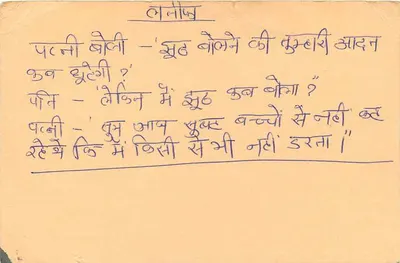 लतीफा
पत्नी बोली - 'झूठ बोलने की तुम्हारी आदत
कब छूटेगी?'
पति - 'लेकिन मैं झूठ कब बोला?"
पत्नी - 'तुम आज सुबह बच्चों से नहीं कह
रहे थे कि मैं किसी से भी नहीं डरता।"